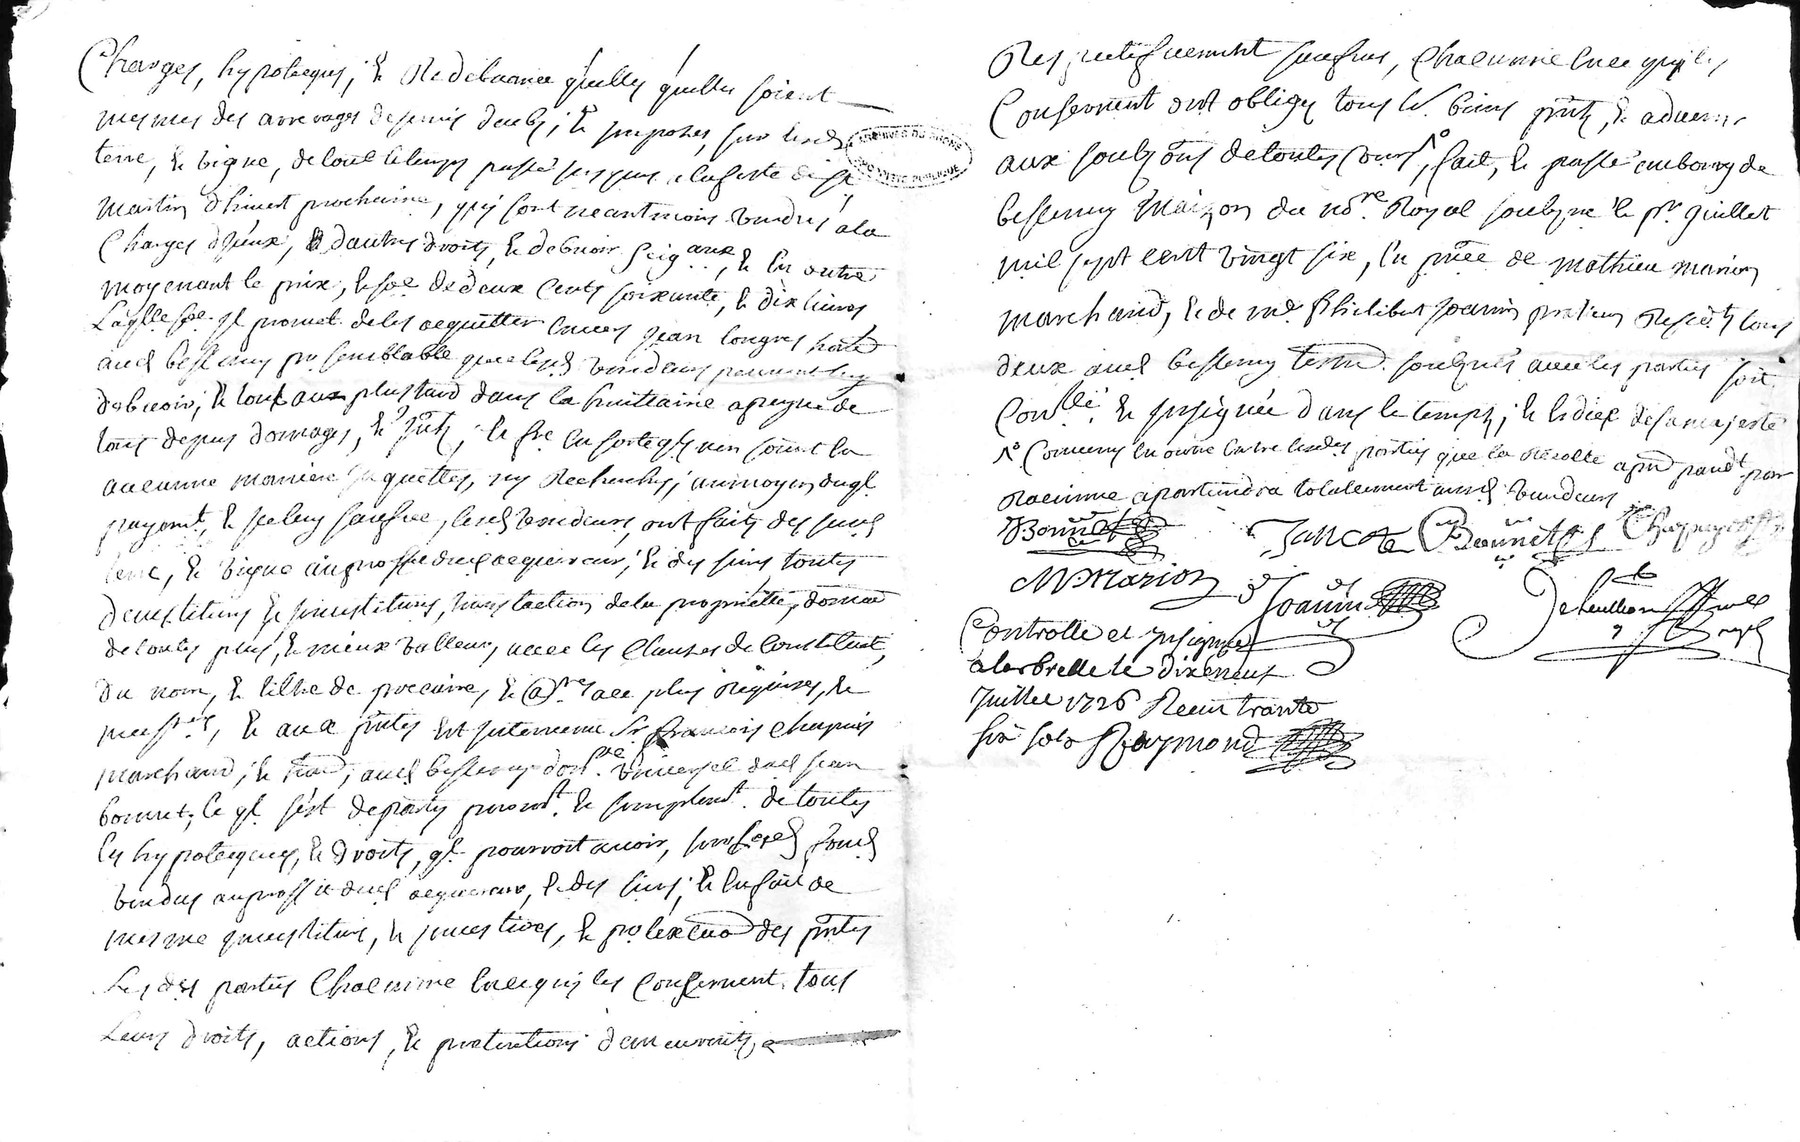 Charges, hypoteques, & Redebvance quelles quelles soient
mesmes des arrerages de servis deubs, & imposés, sur lesd
terre, & vigne, de tout le temps passé jusques a la feste de st
martin d'hivert prochaine, qui sont neantmoins vendus a la
Charges d'jceux, & d'autres droits, & debvoir seigaux, & en outre
moyenant le prix, & soe de deux cents soixante, & dix livres
Laqlle soe jl promet de les acquitter envers jean longres hoste
aud bessenay pr semblable que lesd vendeurs peuvent luy
debvoir, & tout au plus tard dans la huittaine a peyne de
tous depens domages, & jnts, & fre en sorte qls n'en soient en
aucunne maniere jnquettes, ny Recherches, au moyen duql
payemt, & jceluy faisant, lesd vendeurs, ont faits des susd
terre, & vigne au proffit dud acquereur, & des siens toutes
devestitures & jnvestitures, translation de la proprietté, domaie
de toutes plus, & mieux valleur, avec les Clauses de Constitut,
du nom, & tiltre de precaire, & @nes a ce plus Requises, &
necssres, & aux pntes est jntervenu sr francois Chapuis
marchand, & hostd, aud bessenay donre universel dud jean
bonnet, le ql s'est departy puremt & simplemt de toutes
les hypoteques, & droits, ql pourroit avoir, sur lesd fonds
vendus au proffit dud acquereur, & des siens, & en fait de
mesme jnvestiture, &
Lesdes parties Chacunne en ce qui les Concernent tous
Leurs droits, actions, & pretentions demeurants
Respectifvement saufves, Chacunne en ce qui les
Concernent ont obliges tous les biens pnts, & advenir
aux soubzons de toutes Cours, fait, & passé au bourg de
bessenay maizon du nore Royal soubzne le pr juillet
mil sept cent vingt six, en pnce de mathieu marion
marchand, & de me Philibert Joanin praticien Residts tous
deux aud bessenay tesm soubznes avec les parties soit
Conllé & jnsignée dans le temps, & l'edict de sa majesté
Convenu en outre entre lesdes parties que la Récolte apnt pandt par
Racinne apartiendra totalement ausd vendeurs
Bonnet Jancot Bonnet Chapuys
M Marion Joanin
Controllé et jnsigné
a larbrelle le dixneuf
Juillet 1726 Receu trante
six sols Raymond